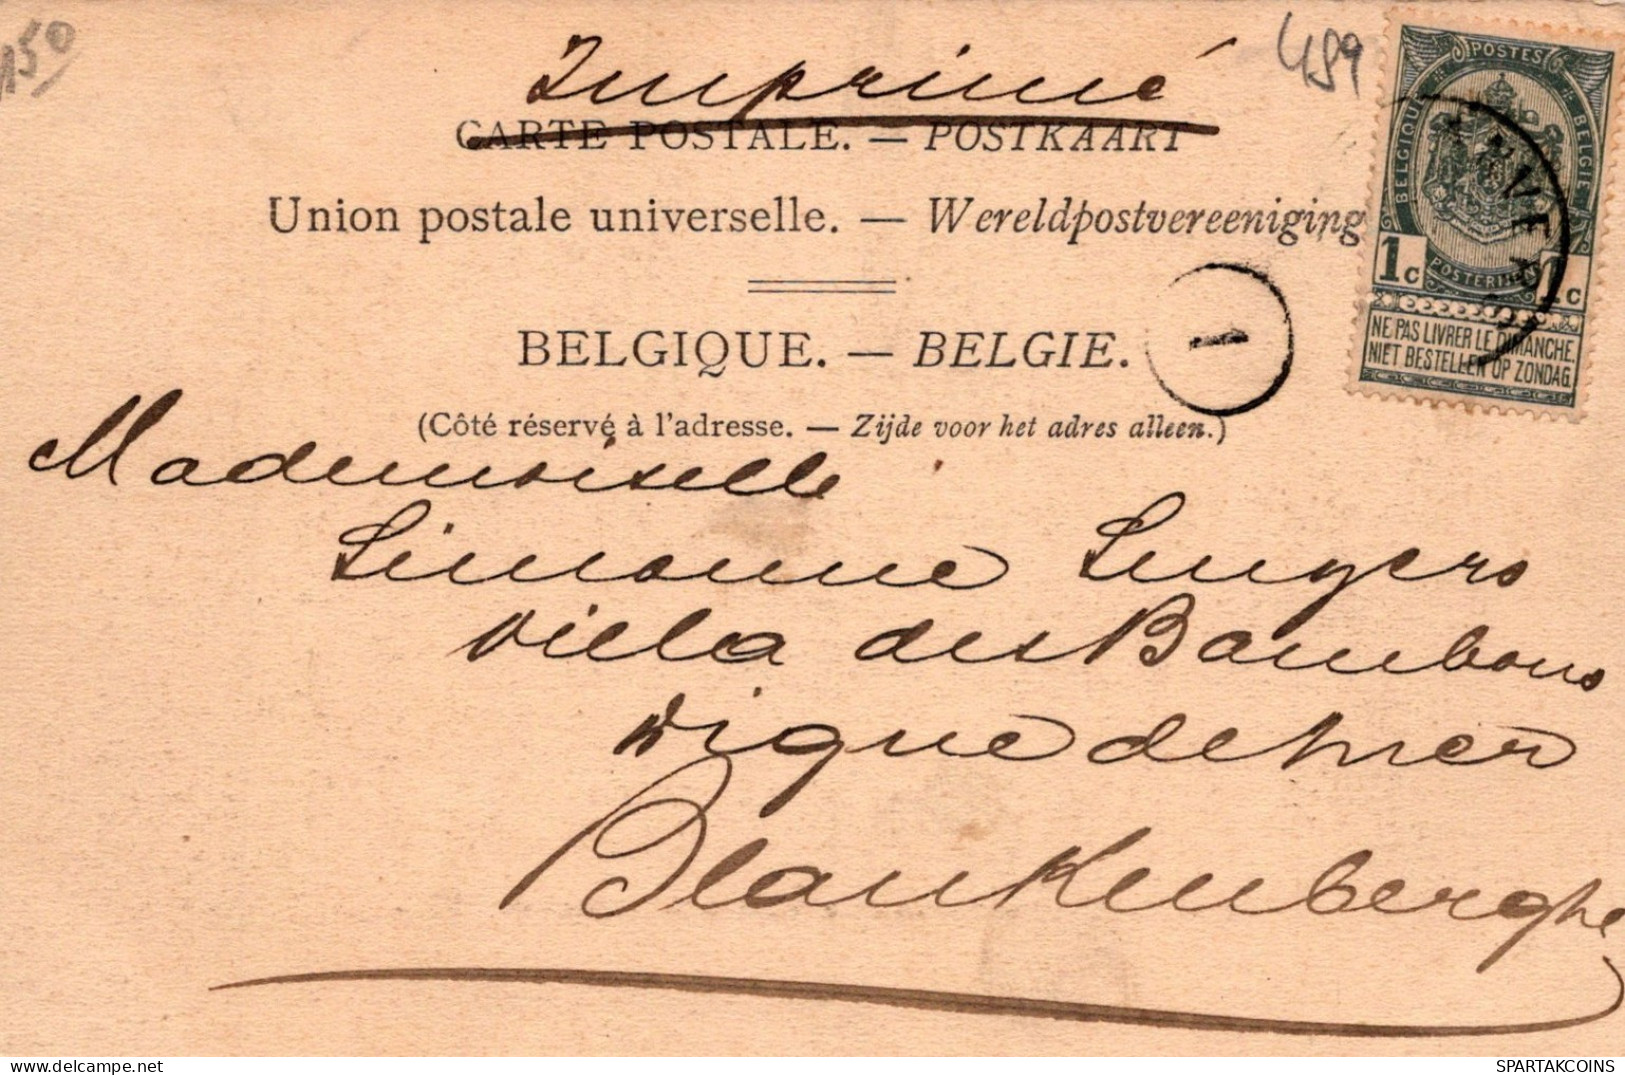 150
Imprimé
489
CARTE POSTALE. — POSTKAART
Union postale universelle. — Wereldpostvereeniging
BELGIQUE. — BELGIE.
(Côté réservé à l'adresse. — Zijde voor het adres alleen.)
1
POSTES
BELGIQUE
BELGIE
POSTERIJEN
1c 1c
NE PAS LIVRER LE DIMANCHE.
NIET BESTELLEN OP ZONDAG.
ANVERS
Mademoiselle
Simonne
Villa des Bambous
Digue de mer
Blankenberghe
SPARTAKCOINS